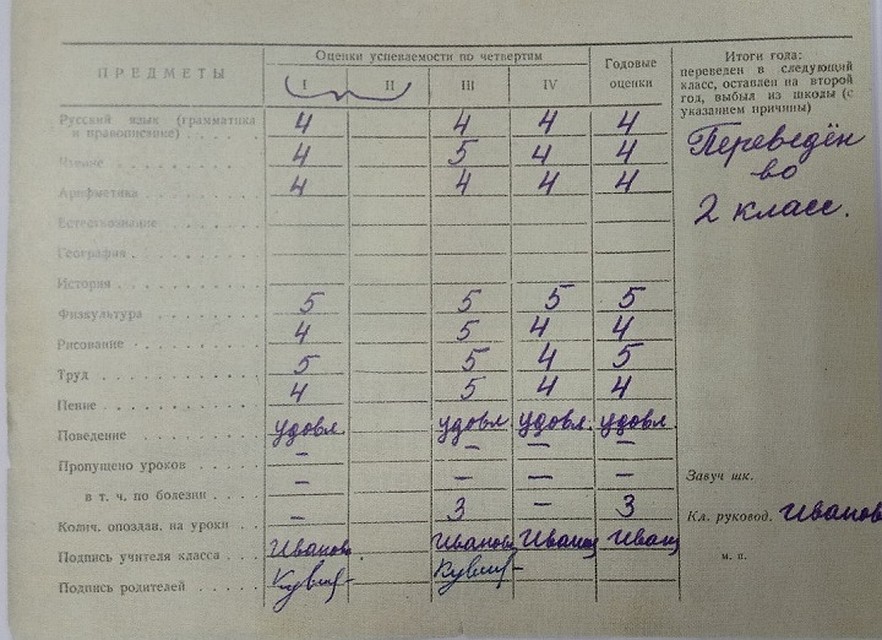 ПРЕДМЕТЫ
Оценки успеваемости по четвертям
I II III IV
Годовые
оценки
Итоги года:
переведен в следующий
класс, оставлен на второй
год, выбыл из школы (с
указанием причины)
Переведён
во
2 класс.
Русский язык (грамматика
и правописание) . . . . 4 4 4 4
Чтение . . . . 4 5 4 4
Арифметика . . . . 4 4 4 4
Естествознание . . . .
География . . . .
История . . . .
Физкультура . . . . 5 5 5 5
Рисование . . . . 4 5 4 4
Труд . . . . 5 5 4 5
Пение . . . . 4 5 4 4
Поведение . . . . удовл. удовл. удовл. удовл.
Пропущено уроков . . . . – – – –
в т. ч. по болезни . . . . – – – –
Колич. опоздав. на уроки . . – 3 – 3
Подпись учителя класса . . . Иванова Иванова
Подпись родителей . . . .
Завуч шк.
Кл. руковод. Иванов
м. п.